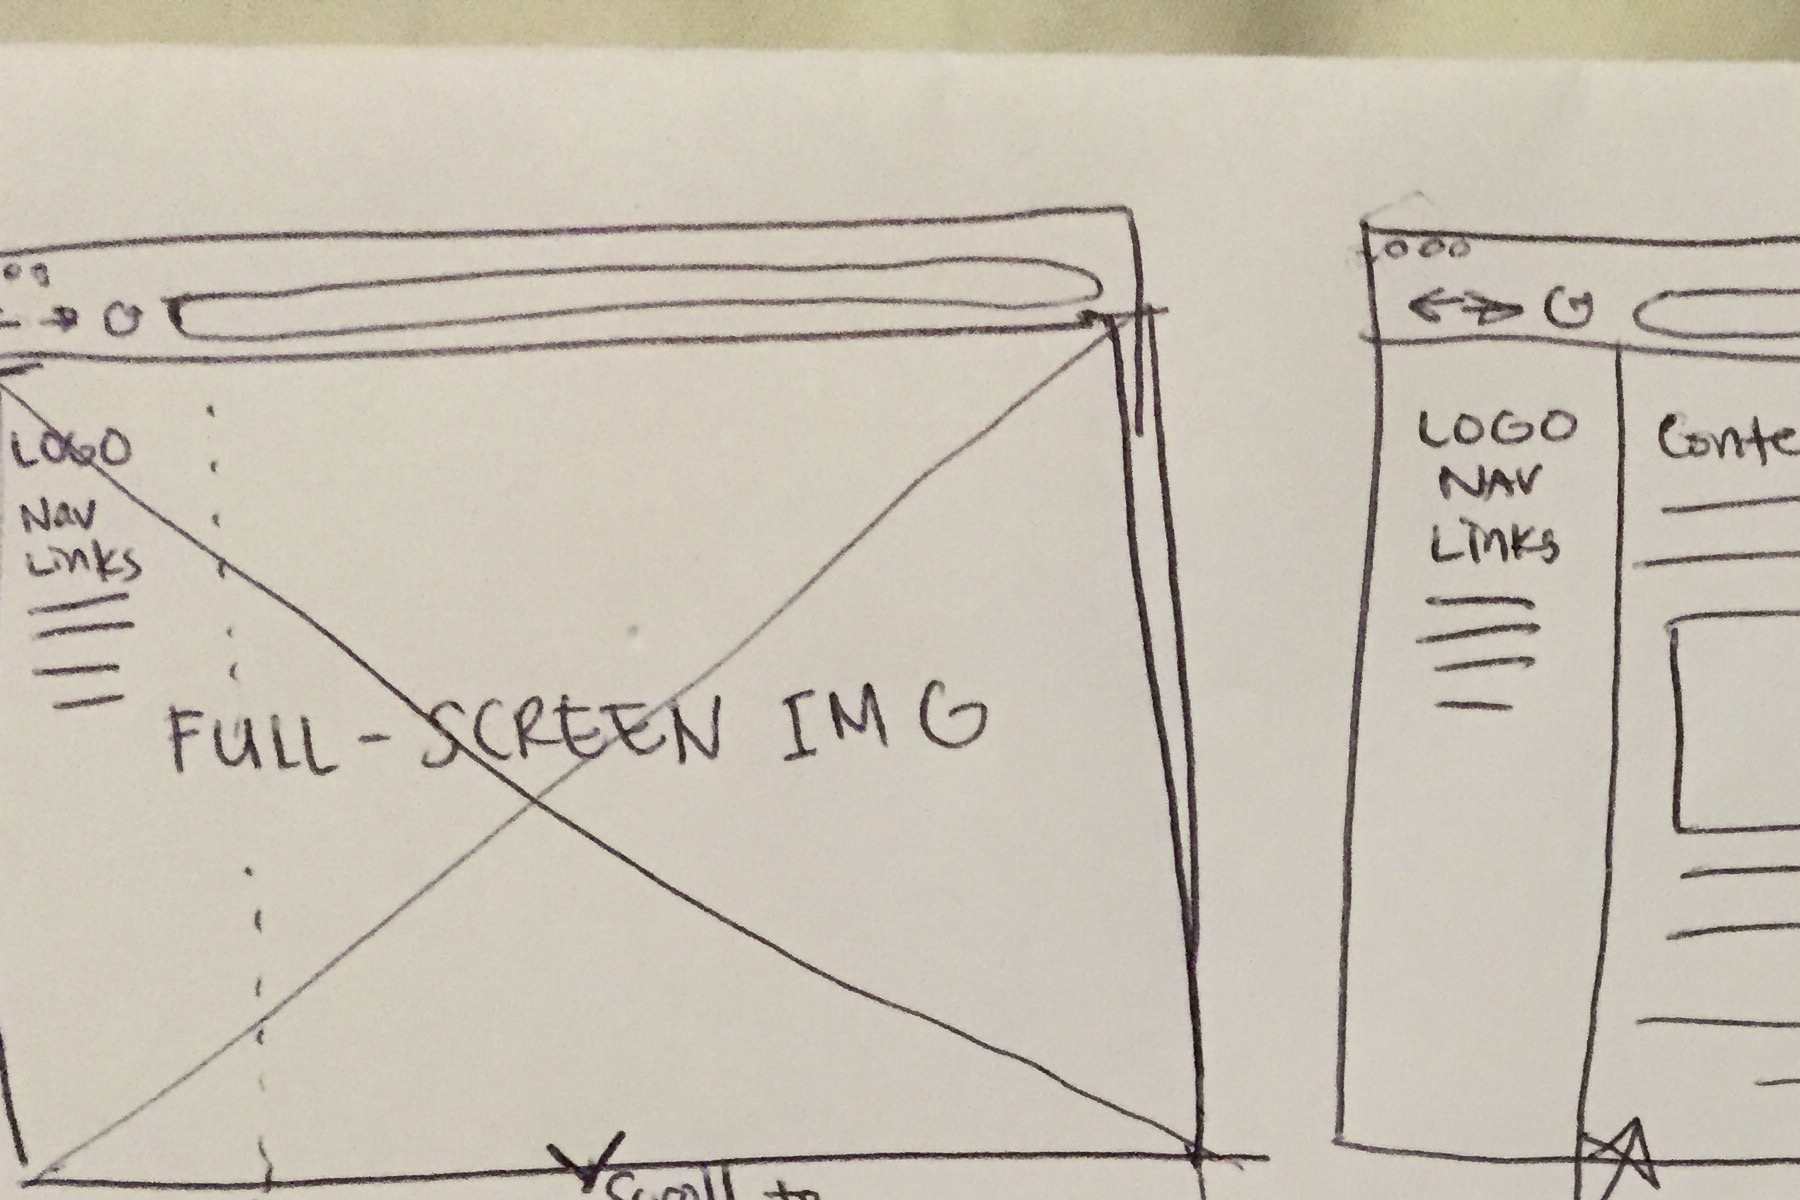 LOGO
Nav
Links
FULL-SCREEN IMG
Scroll to
LOGO
NAV
Links